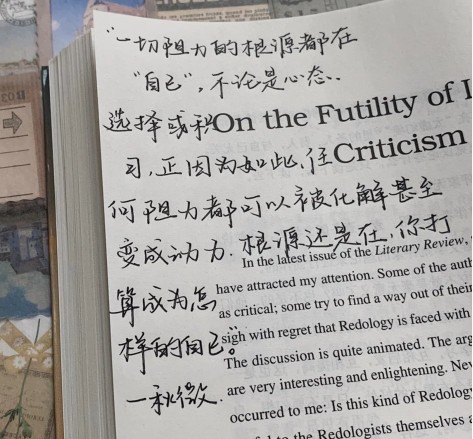 “一切阻力的根源都在
“自己”，不论是心态、
选择或和
司，正因为如此，任
何阻力都可以被化解甚至
变成动力.根源还是在，你打
算成为怎
样的自己。”
一秋微.
On the Futility of
Criticism
In the latest issue of the Literary Review,
have attracted my attention. Some of the
as critical; some try to find a way out of their
sigh with regret that Redology is faced with
The discussion is quite animated. The
are very interesting and enlightening.
occurred to me: Is this kind of
to the Redologists themselves